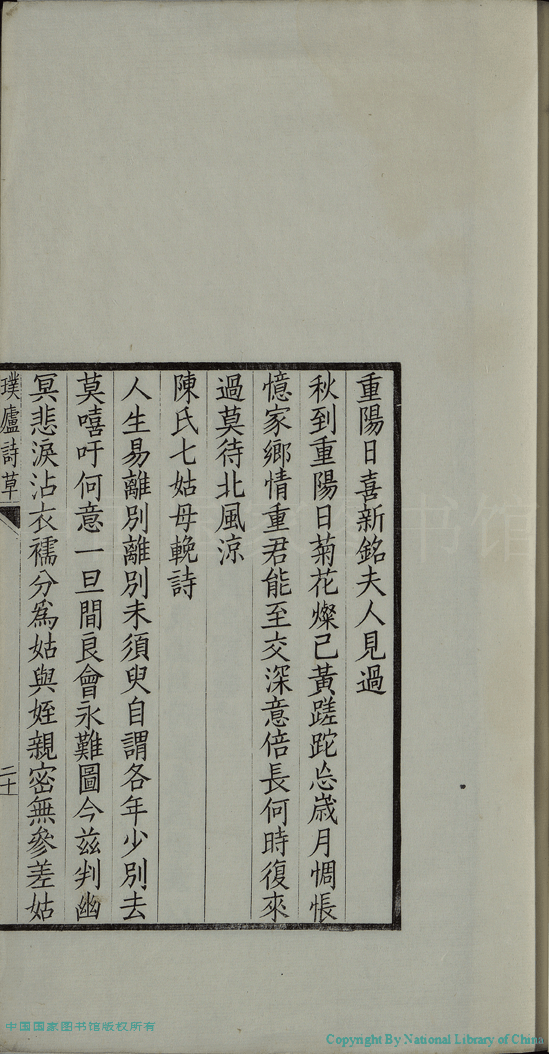 重陽日喜新銘夫人見過
秋到重陽日菊花燦已黃蹉跎忘歲月惆悵
憶家鄉情重君能至交深意倍長何時復來
過莫待北風涼
陳氏七姑母輓詩
人生易離別離別未須臾自謂各年少別去
莫嘻吁何意一旦間良會永難圖今茲判幽
冥悲淚沾衣襦分為姑與姪親密無參差姑
璞廬詩草
二十
中国国家图书馆版权所有
Copyright By National Library of China